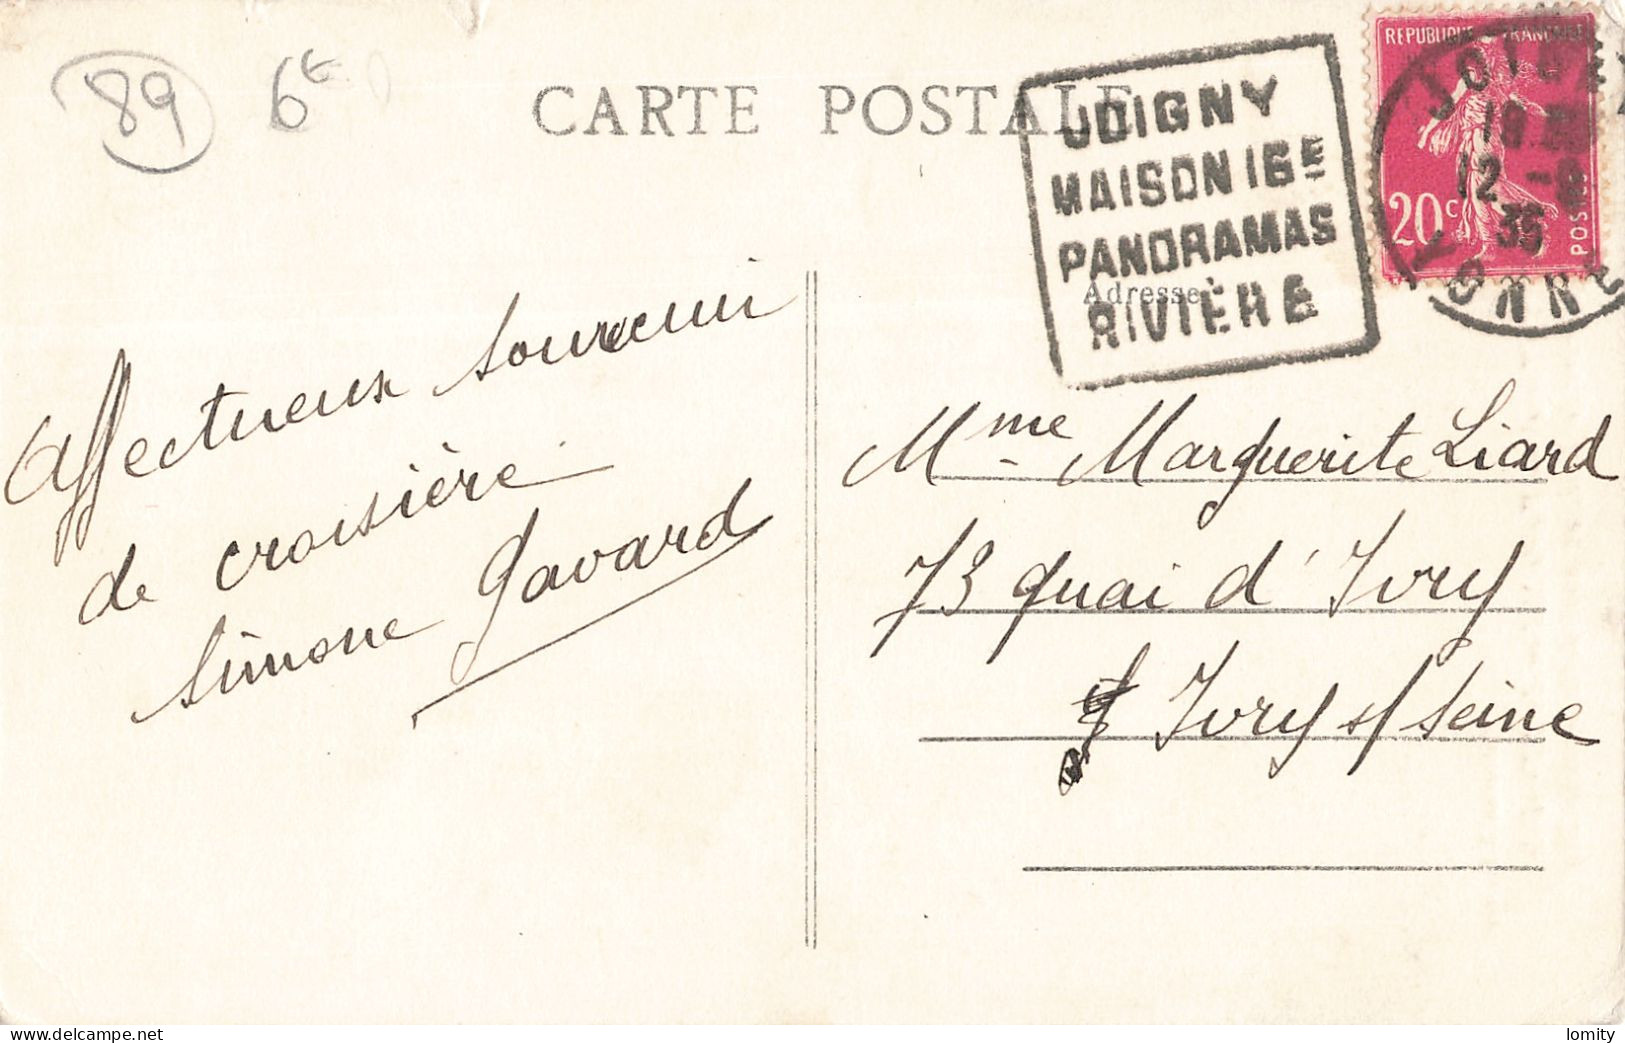 89
6€
CARTE POSTALE
JOIGNY
MAISON 16E
PANORAMAS
RIVIÈRE
REPUBLIQUE FRANÇAISE
20c
POSTES
JOIGNY
12
35
YONNE
Adresse
Affectueux souvenir
de croisière
Simone Gavard
Mme Marguerite Liard
73 quai d'Ivry
Ivry s/ Seine
delcampe.net
lomity